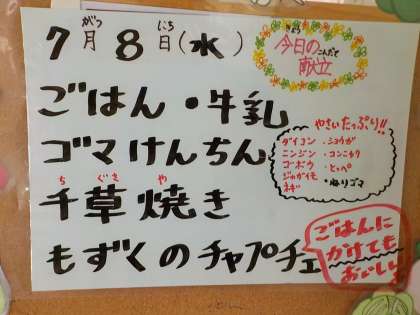 がつ にち
7月8日(水)
きょう
今日の
こんだて
献立
ごはん・牛乳
ゴマけんちん
ち ぐさ や
千草焼き
もずくのチャプチェ
やさいたっぷり!!
ダイコン・ショウガ
ニンジン・コンニャク
ゴボウ・とうふ
ジャガイモ・ねりゴマ
ネギ
ごはんに
かけても
おいしい